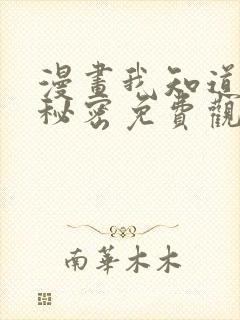 漫畫我知道
秘密免費觀
南華木木